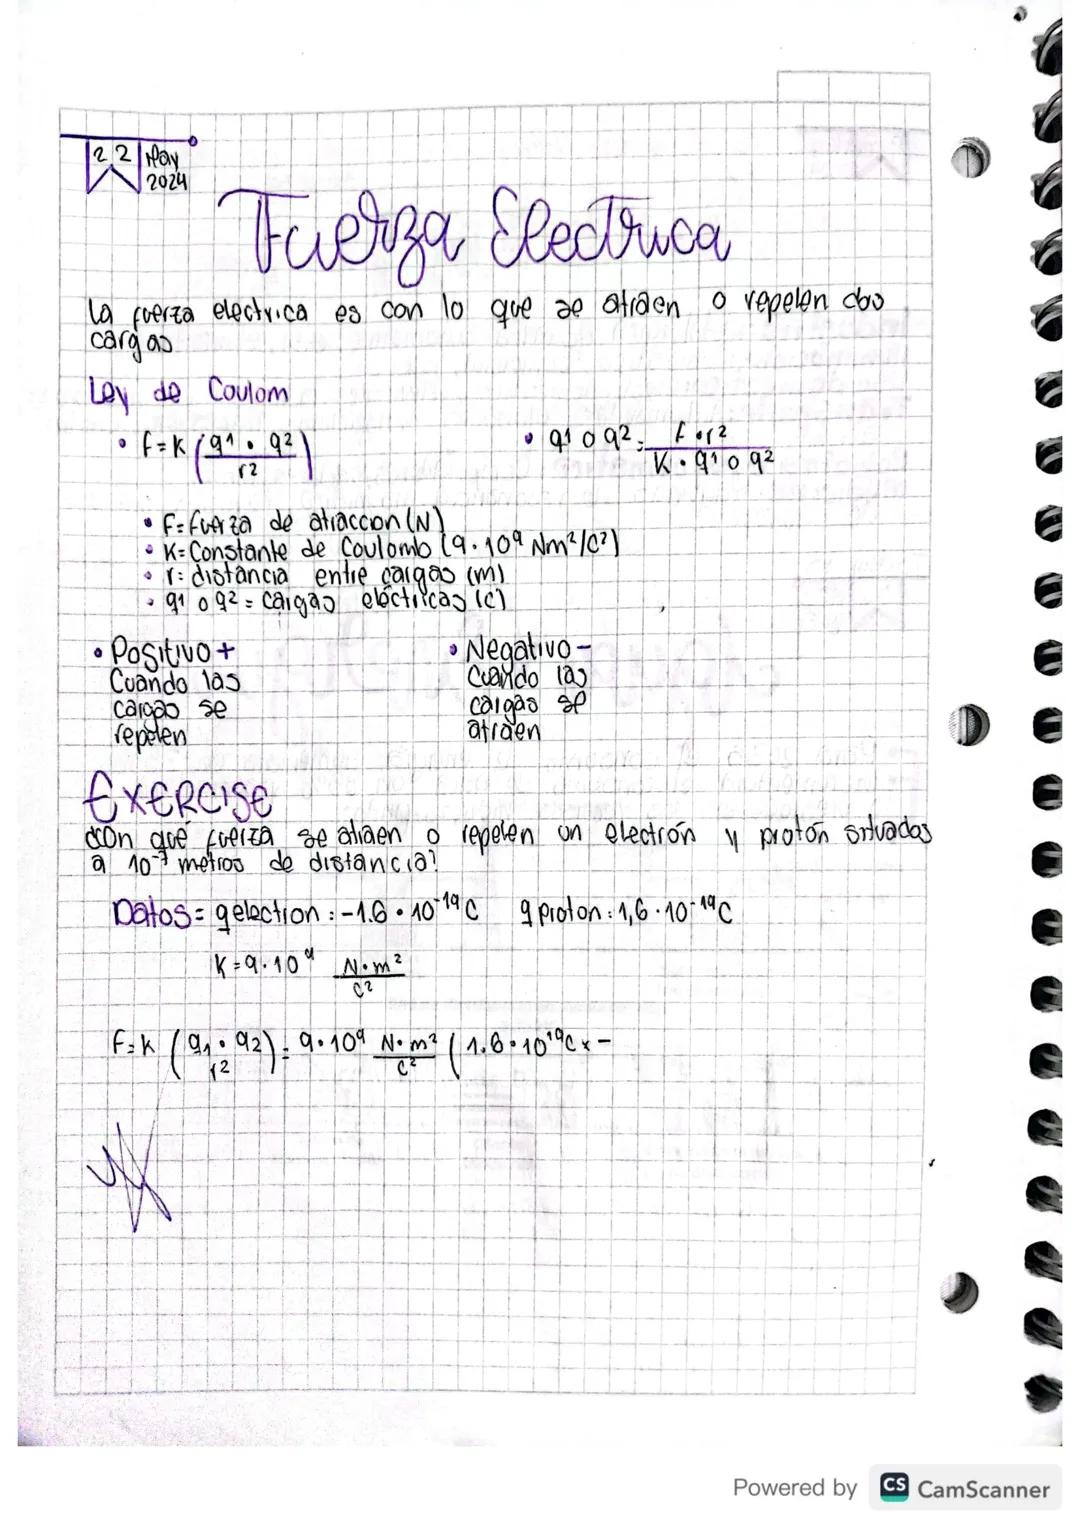 22 May
2024
Fuerza Electrica
La fuerza electrica es con lo que se atraen o repelen dos
cargas
Ley de Coulom
• F=K (q1 • q2 / r2)
• q1 o q2 = F • r2 / K • q1 o q2
• F= fuerza de atraccion (N)
• K= Constante de Coulomb (9 · 10⁹ Nm²/C²)
• r= distancia entre cargas (m)
• q1 o q2 = cargas eléctricas (c)
• Positivo +
Cuando las
cargas se
repelen
• Negativo -
Cuando las
cargas se
atraen
EXERCISE
¿Con qué fuerza se atraen o repelen un electrón y protón situados
a 10⁻⁷ metros de distancia?
Datos= q electron : -1.6 • 10⁻¹⁹ C q proton : 1,6 · 10⁻¹⁹ C
K=9 · 10⁹ N•m² / C²
F=K (q1 • q2 / r2) = 9 • 10⁹ N•m² / C² (1.6 • 10¹⁹C x -
Powered by CS CamScanner